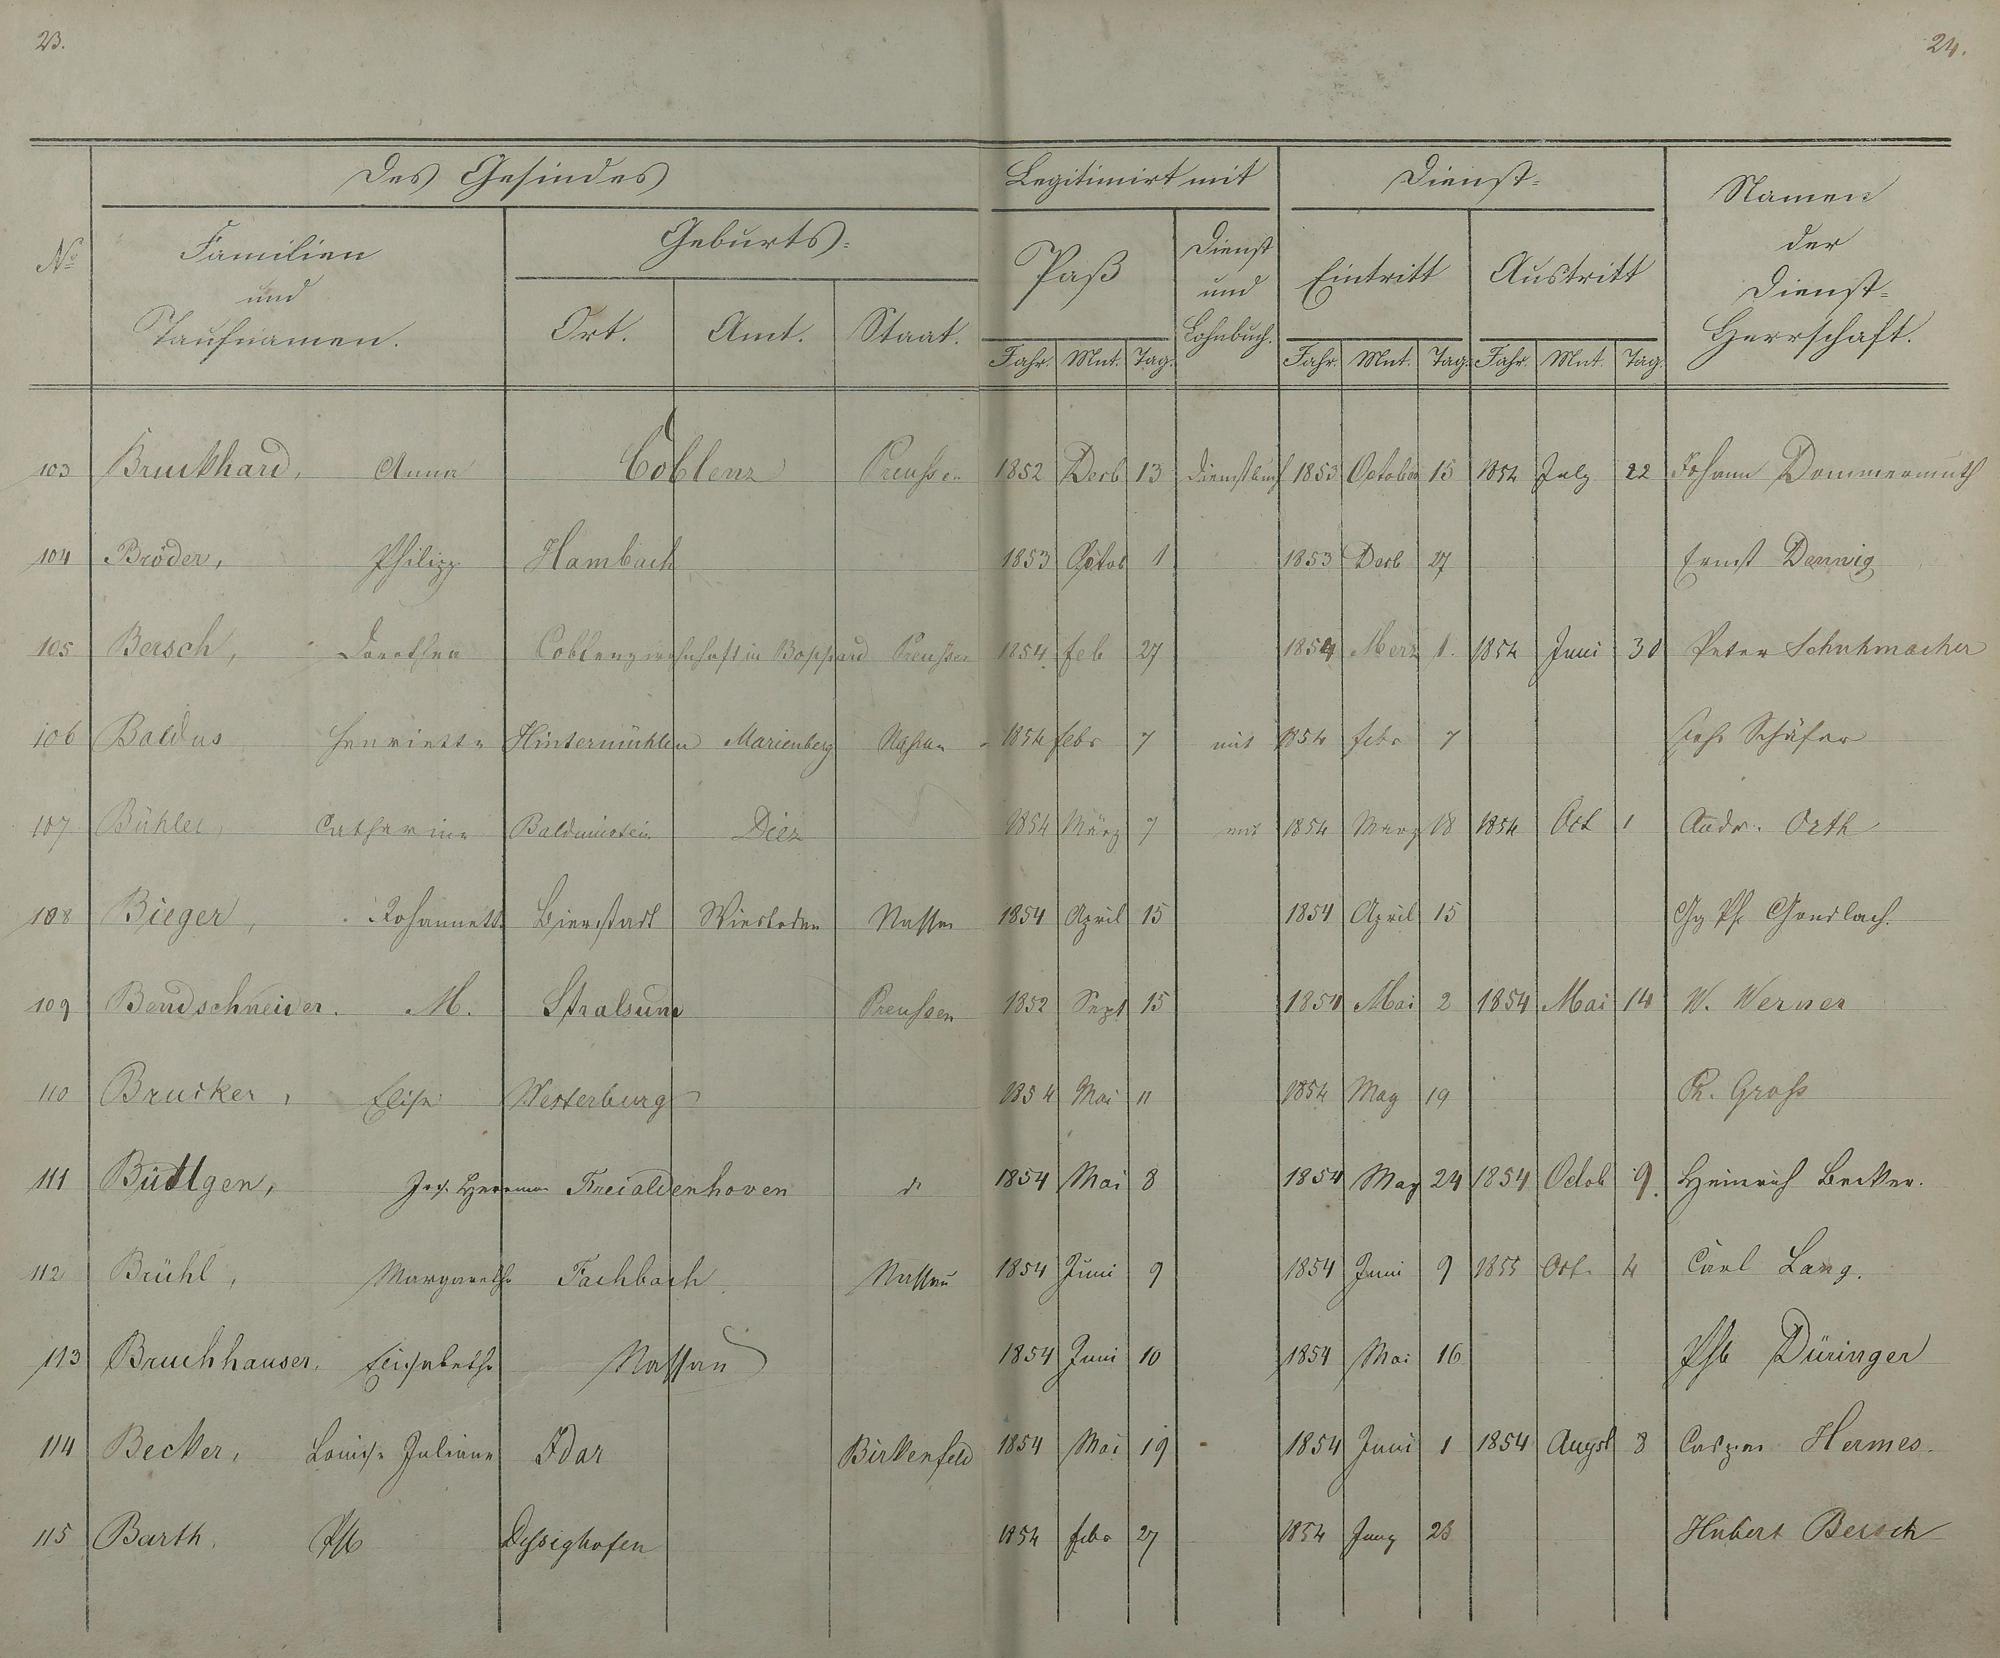 23.
24.
Des Gesindes
Legitimirt mit
Dienst=
Namen der Dienst= Herrschaft.
No
Familien und Taufnamen.
Geburts=
Paß
Dienst und Lohnbuch.
Eintritt
Austritt
Ort. Amt. Staat.
Jahr. Mnt. Tag. Jahr. Mnt. Tag. Jahr. Mnt. Tag.
103 Bruckhard, Anna Coblenz Preussen 1852 Decb 13 Dienstbuch 1853 October 15 1854 July 22 Johann Dommermuth
104 Bröder, Philipp Hambach 1853 Octob 1 1853 Decb 27 Ernst Dennig
105 Bersch, Dorothea Coblenz wohnhaft in Boppard Preussen 1854 feb 27 1854 Merz 1. 1854 Juni 30 Peter Schuhmacher
106 Baldus Henriette Hintermühlen Marienberg Nassau 1854 febr 7 mit 1854 febr 7 Schäfer
107 Bühler, Catharine Balduinstein Diez 1854 März 7 mit 1854 März 18 1854 Oct 1 Andr. Orth
108 Bieger, Johannette Bierstadt Wiesbaden Nassau 1854 April 15 1854 April 15 Gg Ph. Gondlach.
109 Bendschneider. M. Stralsund Preussen 1852 Sept 15 1854 Mai 2 1854 Mai 14 W. Werner
110 Brucker, Elise Westerburg 1854 Mai 11 1854 May 19 Ch. Gross
111 Büttgen, Jos. Hermann Freialdenhoven 1854 Mai 8 1854 May 24 1854 Octob 9. Heinrich Becker.
112 Brühl, Margarethe Fachbach Nassau 1854 Juni 9 1854 Juni 9 1855 Oct. 4 Carl Lang.
113 Bruchhauser. Elisabethe Nassau 1854 Juni 10 1854 Mai 16 Phil Düringer
114 Becker, Louise Juliane Idar Birkenfeld 1854 Mai 19 1854 Juni 1 1854 Augst 8 Caspar Hermes.
115 Barth, Phil Dessighofen 1854 febr 27 1854 Juny 23 Hubert Bersch